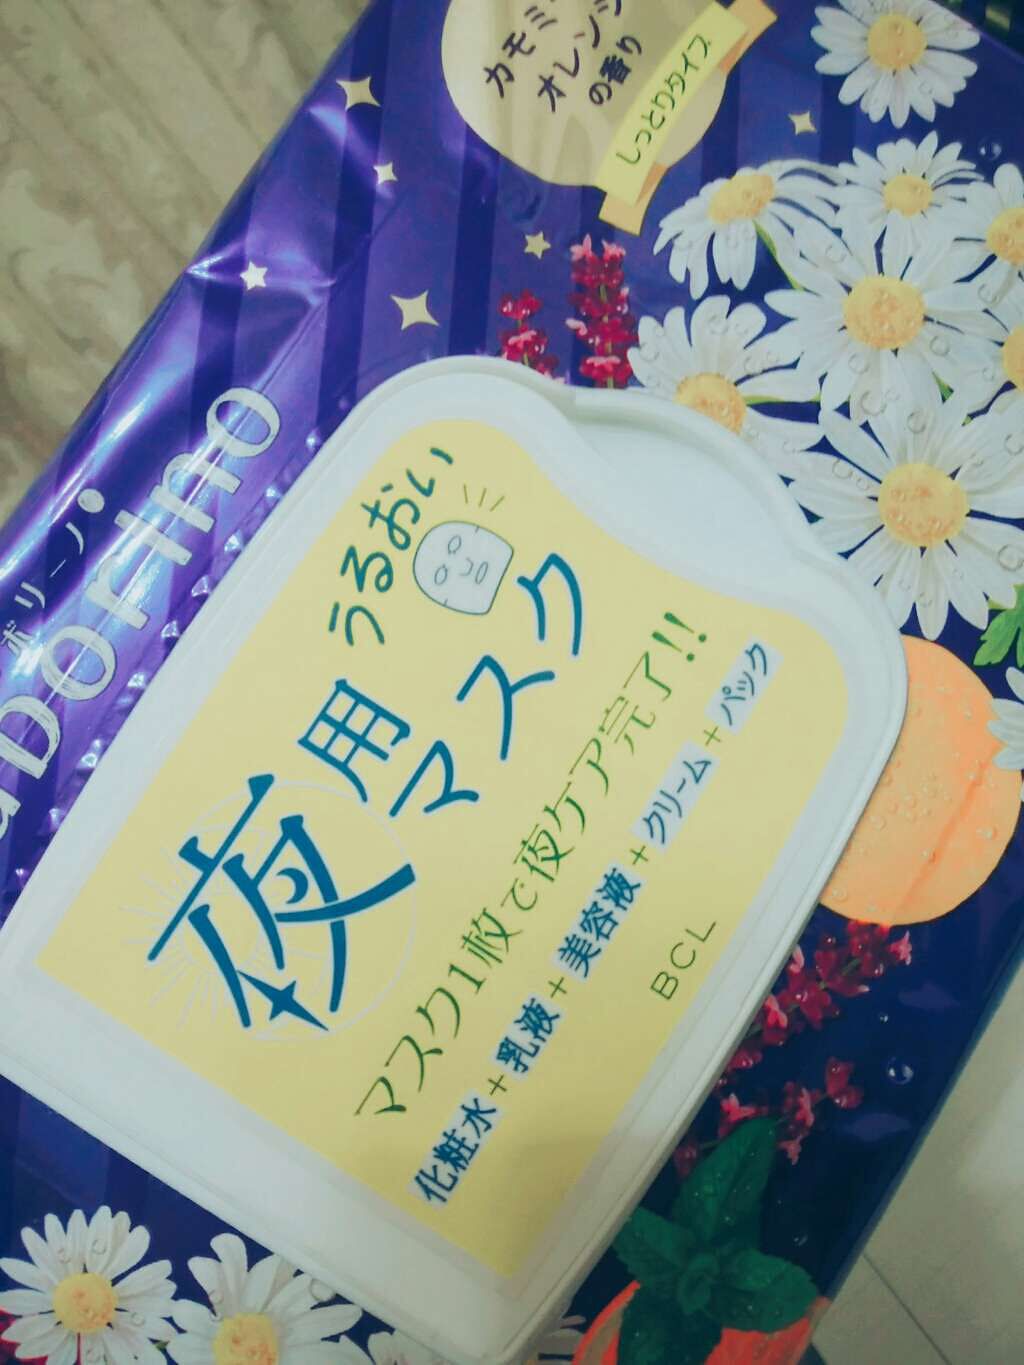 カモミ
オレンジ
の香り
しっとりタイプ
ボリーノ
aBorino
うるおい
夜用
マスク
マスク1枚で夜ケア完了!!
化粧水+乳液+美容液+クリーム+パック
BCL